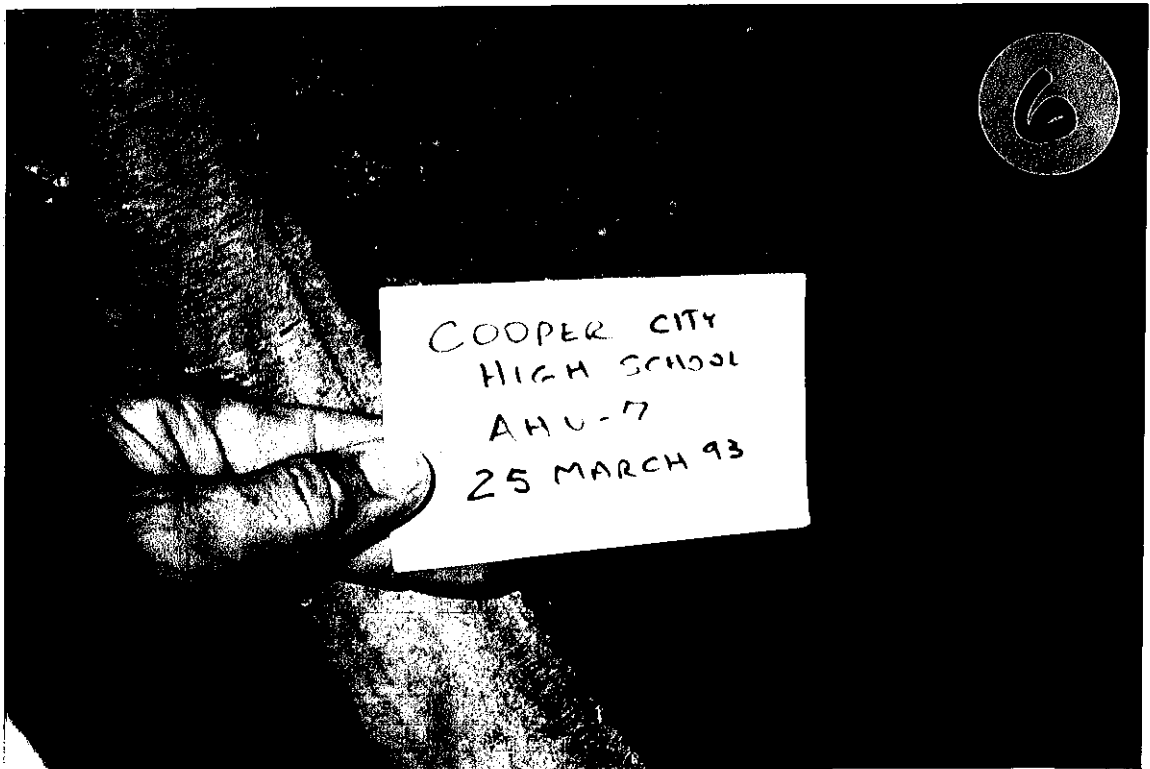 6
COOPER CITY
HIGH SCHOOL
AHU-7
25 MARCH 93